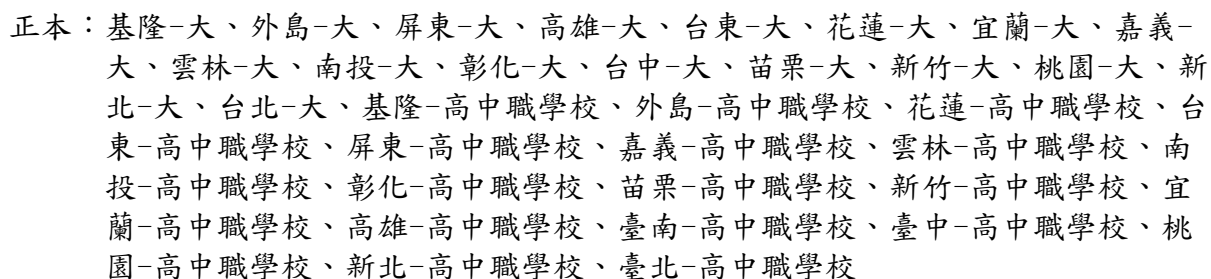 正本：基隆-大、外島-大、屏東-大、高雄-大、台東-大、花蓮-大、宜蘭-大、嘉義-
大、雲林-大、南投-大、彰化-大、台中-大、苗栗-大、新竹-大、桃園-大、新
北-大、台北-大、基隆-高中職學校、外島-高中職學校、花蓮-高中職學校、台
東-高中職學校、屏東-高中職學校、嘉義-高中職學校、雲林-高中職學校、南
投-高中職學校、彰化-高中職學校、苗栗-高中職學校、新竹-高中職學校、宜
蘭-高中職學校、高雄-高中職學校、臺南-高中職學校、臺中-高中職學校、桃
園-高中職學校、新北-高中職學校、臺北-高中職學校